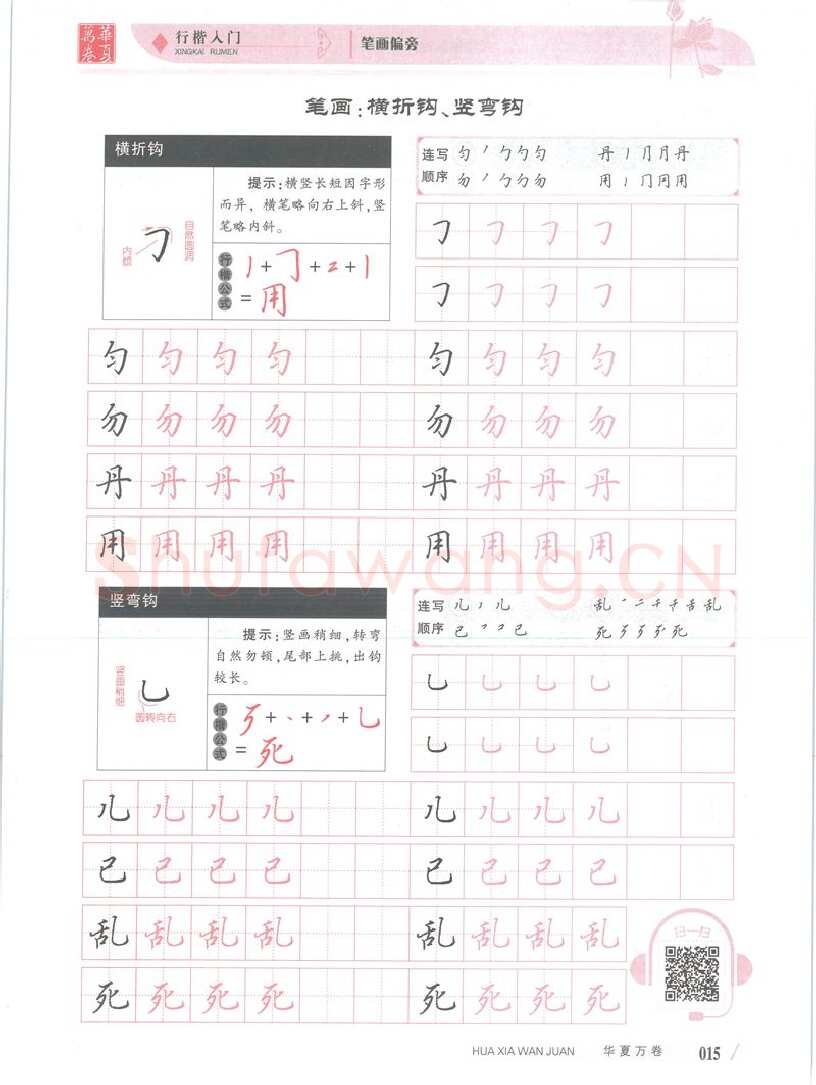 華夏
萬卷
行楷入门
XINGKAI RUMEN
笔画偏旁
笔画:横折钩、竖弯钩
横折钩
提示:横竖长短因字形
而异,横笔略向右上斜,竖
笔略内斜。
自然圆润
内倾
行楷公式
丨+𠃌+二+丨
=用
连写 匀 丿 勹 勺 匀 丹 丨 冂 月 丹
顺序 勿 丿 勹 勺 勿 用 丨 冂 冃 用
𠃌 𠃌 𠃌 𠃌
𠃌 𠃌 𠃌 𠃌
匀 匀 匀 匀 匀 匀 匀 匀
勿 勿 勿 勿 勿 勿 勿 勿
丹 丹 丹 丹 丹 丹 丹 丹
用 用 用 用 用 用 用 用
Shufawang.CN
竖弯钩
提示:竖画稍细,转弯
自然勿顿,尾部上挑,出钩
较长。
竖画稍细
圆转向右
行楷公式
歹+丶+丿+乚
=死
连写 儿 丿 儿 乱 二 千 舌 乱
顺序 己 己 死 歹 死
乚 乚 乚 乚
乚 乚 乚 乚
儿 儿 儿 儿 儿 儿 儿 儿
己 己 己 己 己 己 己 己
乱 乱 乱 乱 乱 乱 乱 乱
死 死 死 死 死 死 死 死
扫一扫
HUA XIA WAN JUAN 华夏万卷 015 /